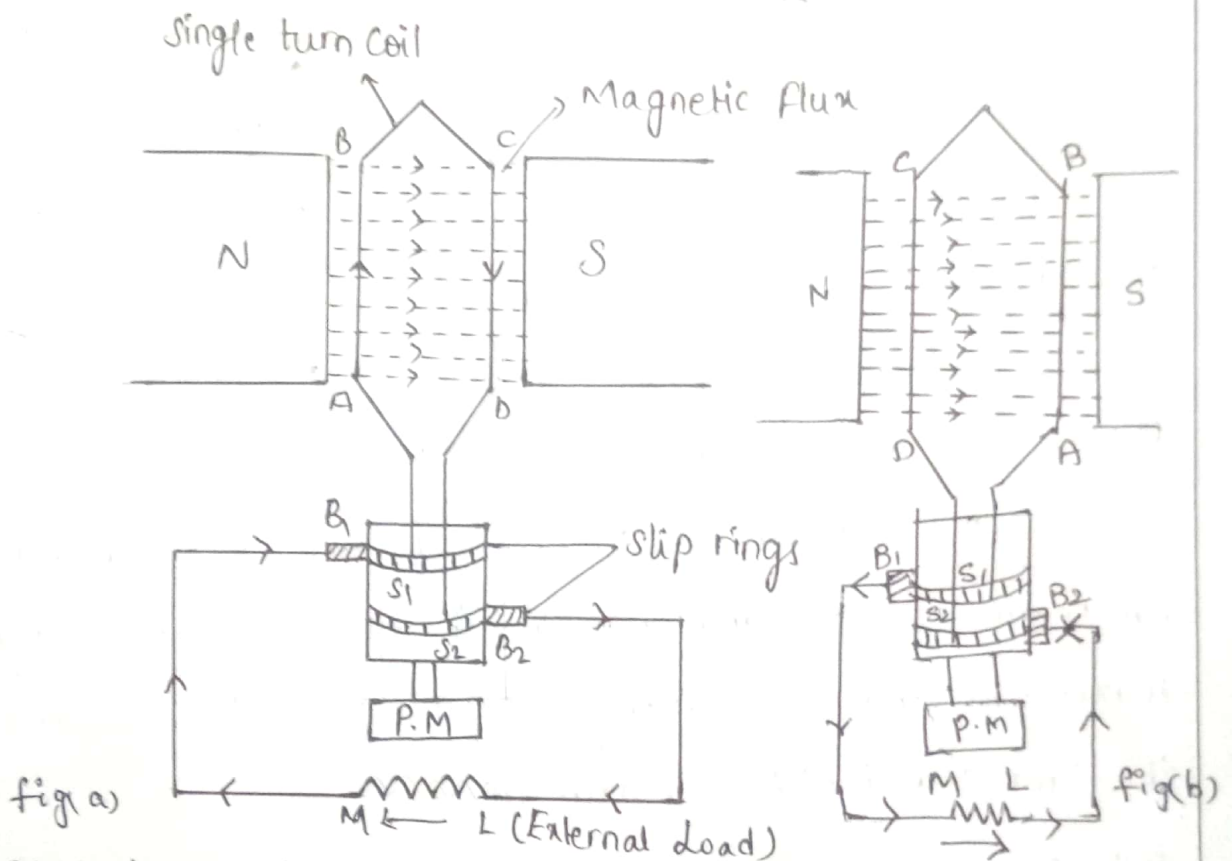 Single turn coil
Magnetic flux
B C
N S
A D
B1
S1
Slip rings
S2 B2
P.M
fig(a)
M ← L (External Load)
C B
N S
D A
B1 S1
S2 B2
P.M
M L
fig(b)